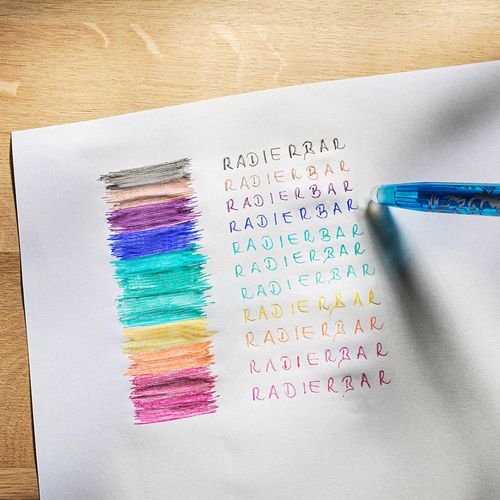 RADIERBAR
RADIERBAR
RADIERBAR
RADIERBAR
RADIERBAR
RADIERBAR
RADIERBAR
RADIERBAR
RADIERBAR
RADIERBAR
RADIERBAR